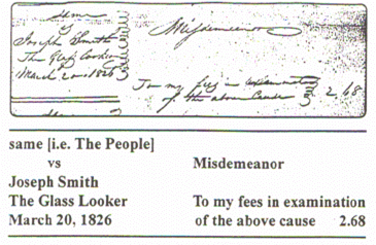 same
vs
Joseph Smith
The Glass Looker
March 20 1826
Misdemeanor
To my fees in examination
of the above Cause 2.68
same [i.e. The People]
vs Misdemeanor
Joseph Smith
The Glass Looker To my fees in examination
March 20, 1826 of the above cause 2.68